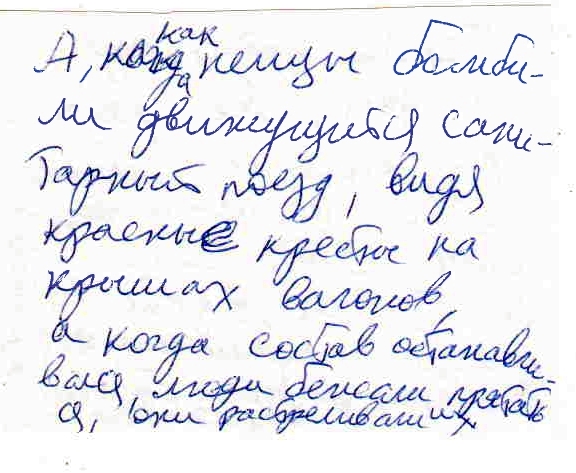 А, как немцы бомби-
ли движущийся сани-
тарный поезд, видя
красные кресты на
крышах вагонов,
а когда состав останавли-
вался, люди бежали прятать
ся, они расстреливали их